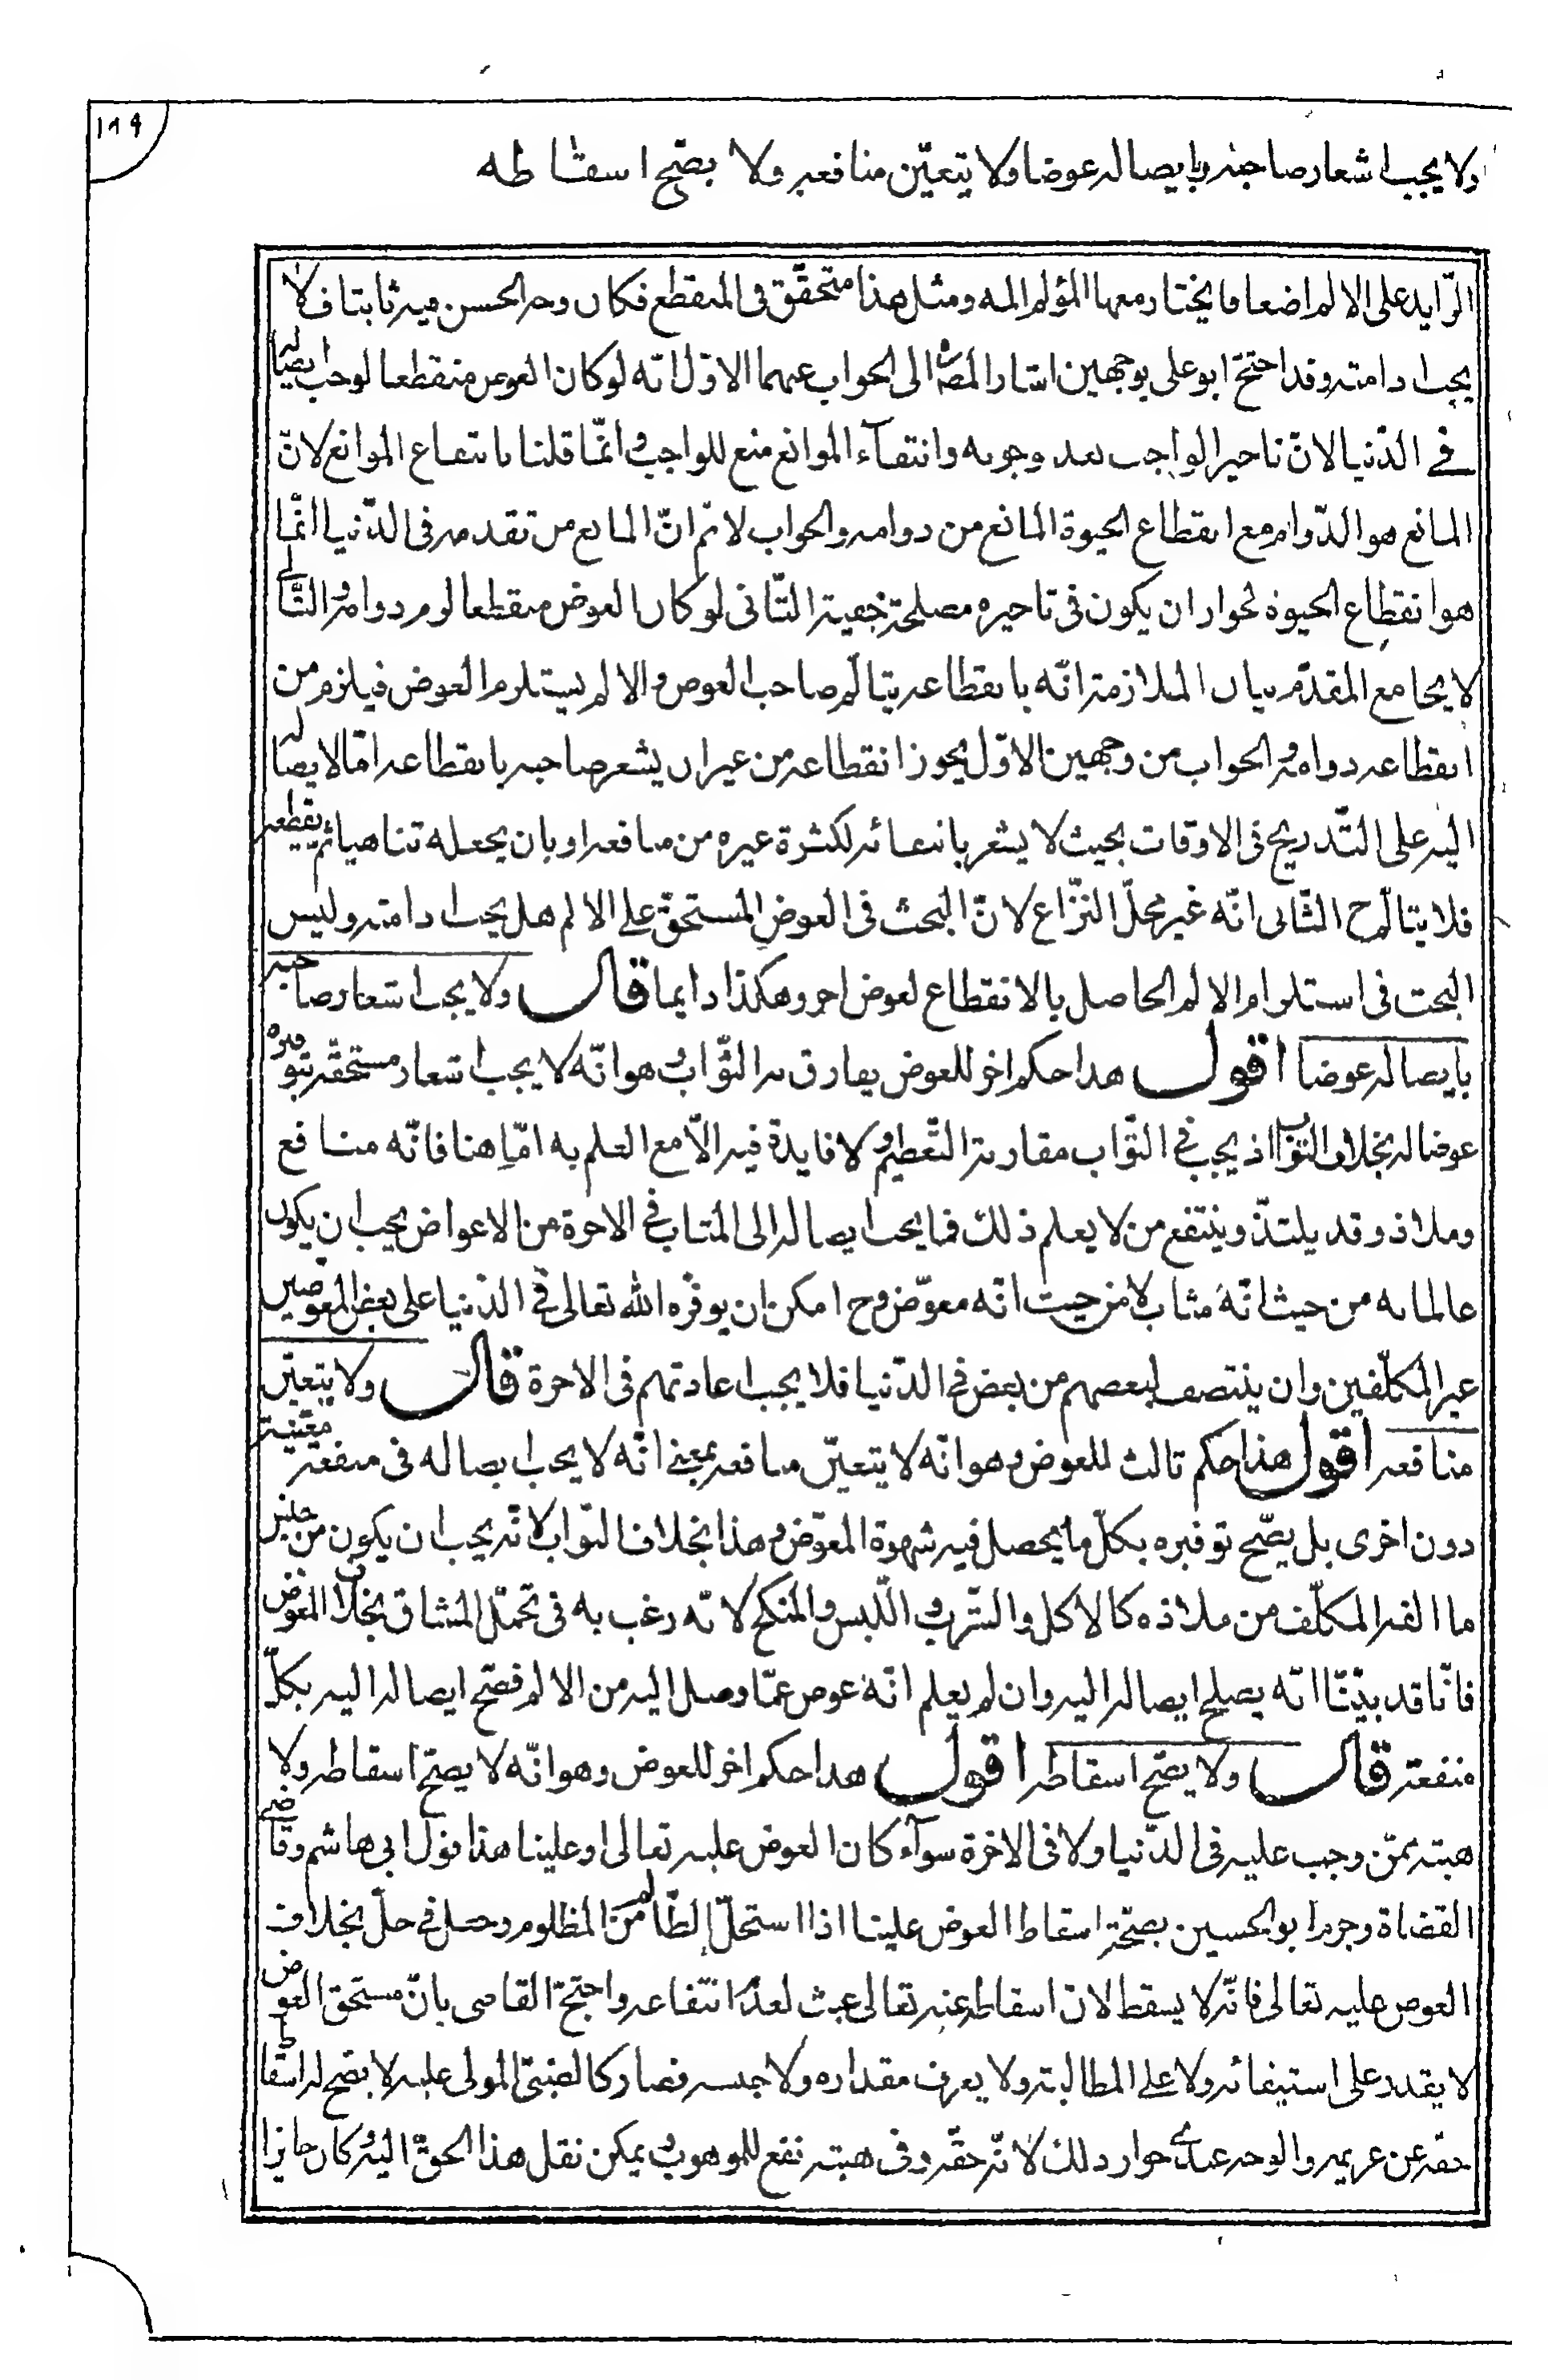 ١٨٩
ولا يجب اشعار صاحبه بايصاله عوضا ولا يتعيّن منافعه ولا يصحّ اسقاطه
الزّايد على الالم اضعافا يختار معها المؤلم المه ومثل هذا متحقّق فى المنقطع فكان وجه الحسن فيه ثابتا فلا
يجب ادامته وقد احتجّ ابو على بوجهين اشار المصنف الى الجواب عنهما الاوّل انّه لو كان العوض منقطعا لوجب ايصاله
فى الدّنيا لانّ تاخير الواجب بعد وجوبه وانتفآء الموانع منع للواجب وانّما قلنا بانتفاع الموانع لانّ
المانع هو الدّوام مع انقطاع الحيوة المانع من دوامه والجواب لا نم انّ المانع من تقدمه فى الدّنيا انّما
هو انقطاع الحيوة لجواز ان يكون فى تاخيره مصلحة خفية الثّانى لو كان العوض منقطعا لزم دوامه والتّالى
لا يجامع المقدّم بيان الملازمة انّه بانقطاعه يتالّم صاحب العوض والالم يستلزم العوض فيلزم من
انقطاعه دوامه والجواب من وجهين الاوّل يجوز انقطاعه من غير ان يشعر صاحبه بانقطاعه امّا لايصاله
اليه على التّدريج فى الاوقات بحيث لا يشعر بانتفائه لكثرة غيره من منافعه او بان يجعله تناهيا ثم يقطعه
فلا يتالّم ح الثّانى انّه غير محلّ النّزاع لانّ البحث فى العوض المستحقّ على الالم هل يجب ادامته وليس
البحث فى استلزام الالم الحاصل بالانقطاع لعوض اخر وهكذا دايما قال ولا يجب اشعار صاحبه
بايصاله عوضا اقول هذا حكم اخر للعوض يفارق به الثّواب وهو انّه لا يجب اشعار مستحقّه بتوفيره
عوضا له بخلاف الثّواب اذ يجب فى الثّواب مقارنة التّعظيم ولا فايدة فيه الّا مع العلم به امّا هنا فانّه منافع
وملاذ وقد يلتذّ وينتفع من لا يعلم ذلك فما يجب ايصاله الى المثاب فى الاخرة من الاعواض يجب ان يكون
عالما به من حيث انّه مثاب لا من حيث انّه معوّض وح امكن ان يوفّره الله تعالى فى الدّنيا على بعض المعوضين
غير المكلّفين وان ينتصف لبعضهم من بعض فى الدّنيا فلا يجب اعادتهم فى الاخرة قال ولا يتعيّن
منافعه اقول هذا حكم ثالث للعوض وهو انّه لا يتعيّن منافعه بمعنى انّه لا يجب ايصاله فى منفعة معيّنة
دون اخرى بل يصّح توفيره بكلّ ما يحصل فيه شهوة المعوّض وهذا بخلاف الثواب لانّه يجب ان يكون من جنس
ما الفه المكلّف من ملاذه كالاكل والشّرب واللّبس والمنكح لانّه رغب به فى تحمّل المشاق بخلاف العوض
فانّا قد بيّنّا انّه يصلح ايصاله اليه وان لم يعلم انّه عوض عمّا وصل اليه من الالم فصّح ايصاله اليه بكلّ
منفعة قال ولا يصّح اسقاطه اقول هذا حكم اخر للعوض وهو انّه لا يصحّ اسقاطه ولا
هبته ممّن وجب عليه فى الدّنيا ولا فى الاخرة سوآء كان العوض عليه تعالى او علينا هذا قول ابى هاشم وقاضى
القضاة وجزم ابو الحسين بصحّة اسقاط العوض علينا اذا استحلّ الظّالم من المظلوم وجعله فى حلّ بخلاف
العوض عليه تعالى فانّه لا يسقط لانّ اسقاطه عنه تعالى عبث لعدم انتفاعه واحتجّ القاضى بانّ مستحق العوض
لا يقدر على استيفائه ولا على المطالبة ولا يعرف مقداره ولا جنسه فصار كالصّبىّ المولى عليه لا يصّح له اسقاط
حقّه عن غريمه والوجه عندى جواز ذلك لانّه حقّه وفى هبته نفع للموهوب ويمكن نقل هذا الحقّ اليه فكان جايزا